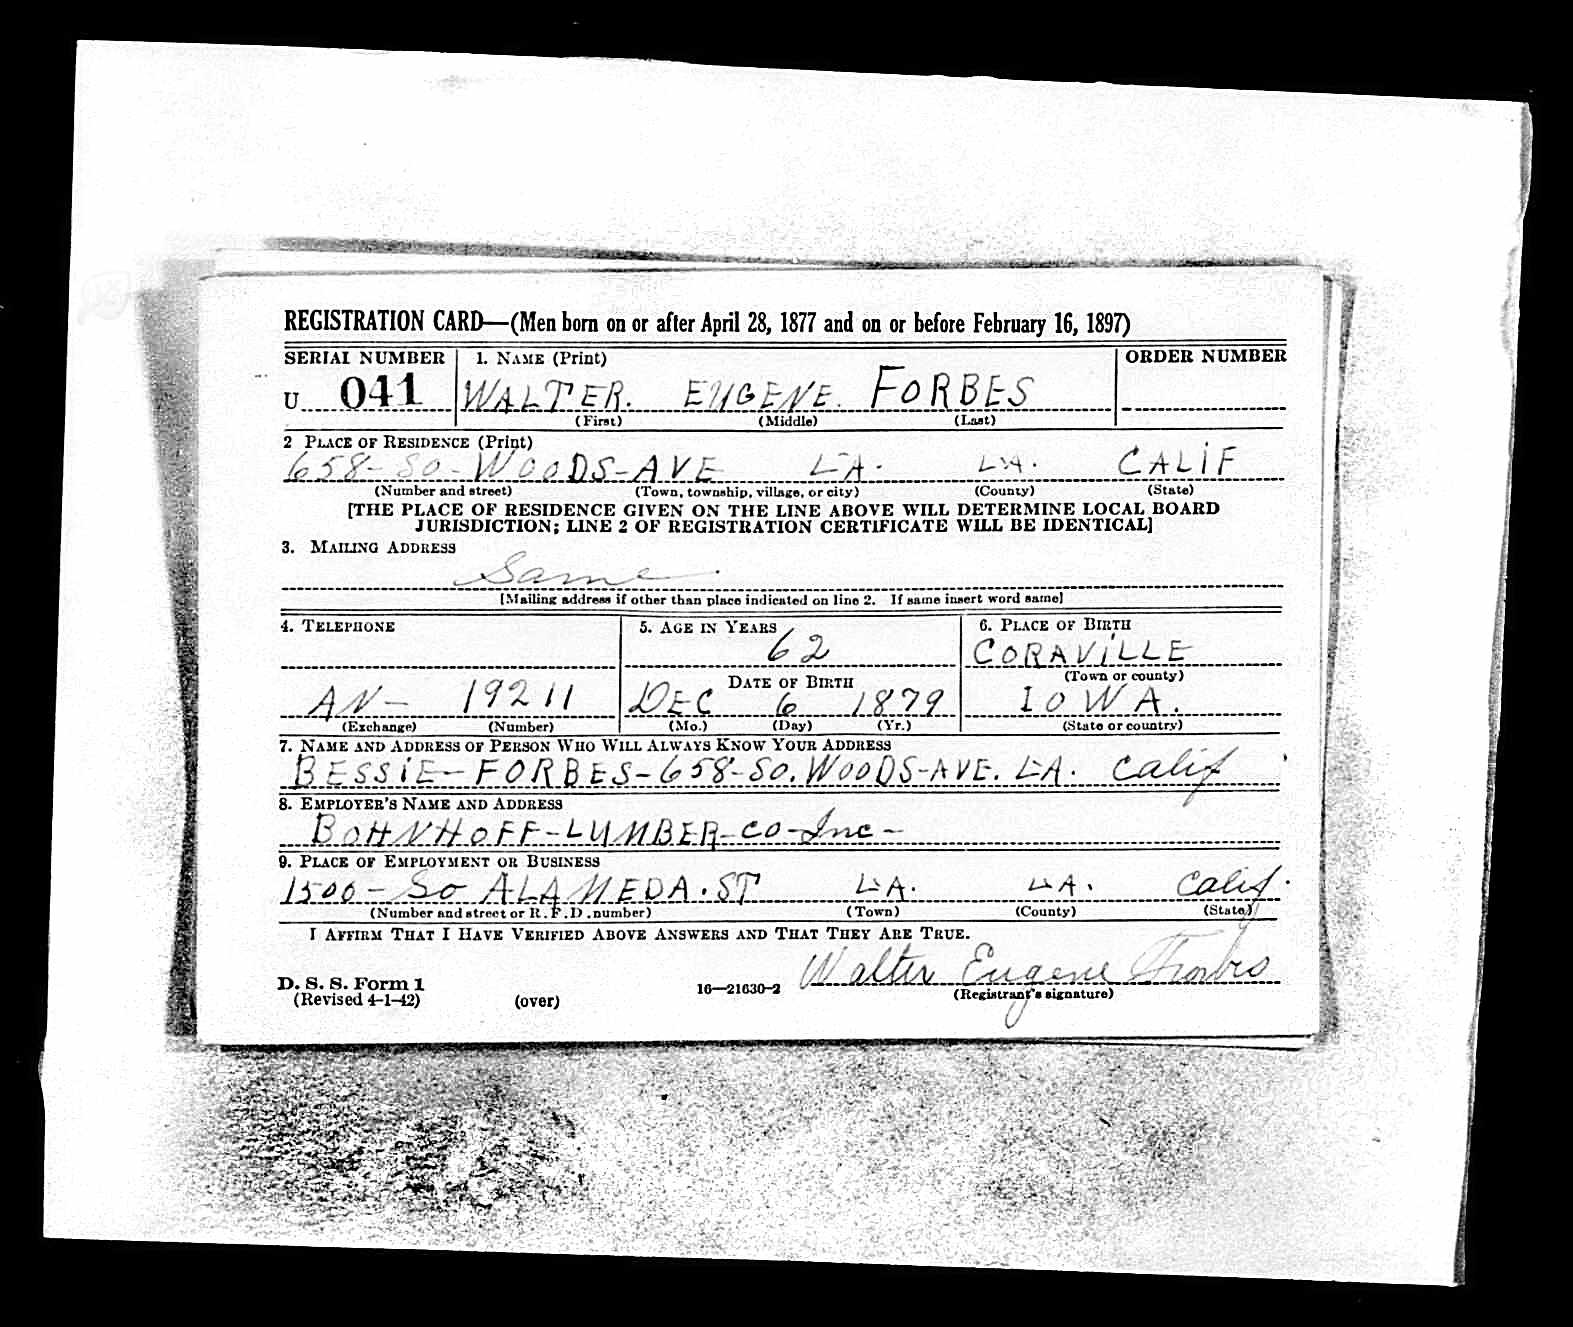 REGISTRATION CARD—(Men born on or after April 28, 1877 and on or before February 16, 1897)
SERIAL NUMBER 1. NAME (Print) ORDER NUMBER
U 041 WALTER. EUGENE. FORBES
(First) (Middle) (Last)
2 PLACE OF RESIDENCE (Print)
658-So-WOODS-AVE L.A. L.A. CALIF
(Number and street) (Town, township, village, or city) (County) (State)
[THE PLACE OF RESIDENCE GIVEN ON THE LINE ABOVE WILL DETERMINE LOCAL BOARD
JURISDICTION; LINE 2 OF REGISTRATION CERTIFICATE WILL BE IDENTICAL]
3. MAILING ADDRESS
Same
[Mailing address if other than place indicated on line 2. If same insert word same]
4. TELEPHONE 5. AGE IN YEARS 6. PLACE OF BIRTH
62 CORAViLLE
DATE OF BIRTH (Town or county)
AN- 19211 DEC 6 1879 IOWA.
(Exchange) (Number) (Mo.) (Day) (Yr.) (State or country)
7. NAME AND ADDRESS OF PERSON WHO WILL ALWAYS KNOW YOUR ADDRESS
BESSiE-FORBES-658-So.WOODS-AVE. L.A. Calif
8. EMPLOYER'S NAME AND ADDRESS
BOHNHOFF-LUMBER-CO-Inc-
9. PLACE OF EMPLOYMENT OR BUSINESS
1500-So ALAMEDA.ST L.A. L.A. Calif.
(Number and street or R. F. D. number) (Town) (County) (State)
I AFFIRM THAT I HAVE VERIFIED ABOVE ANSWERS AND THAT THEY ARE TRUE.
Walter Eugene Forbes
D. S. S. Form 1
(Revised 4-1-42) (over) 16—21630-2 (Registrant's signature)